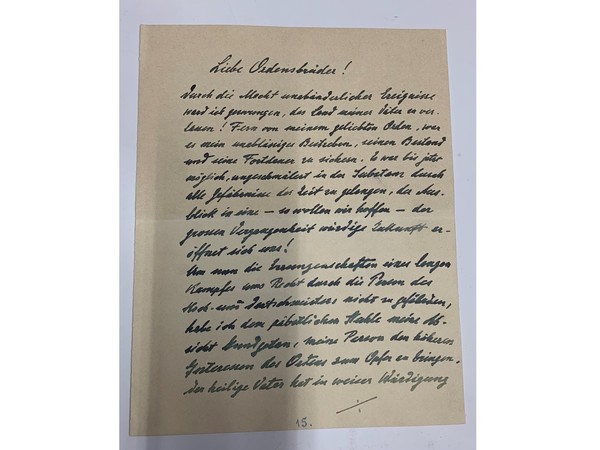 Liebe Ordensbrüder!
Durch die Macht unabänderlicher Ereignisse
werd ich gezwungen, das Land meiner Väter zu ver-
lassen! Fern von meinem geliebten Orden, war
es mein unablässiges Bestreben, seinen Bestand
und seine Fortdauer zu sichern. Es war bis jetzt
möglich, ungeschmälert in der Substanz durch
alle Gefährnisse der Zeit zu gelangen, der Aus-
blick in eine – so wollen wir hoffen – der
grossen Vergangenheit würdige Zukunft er-
öffnet sich uns!
Um nun die Errungenschaften eines langen
Kampfes ums Recht durch die Person des
Hoch- und Deutschmeisters nicht zu gefährden,
habe ich dem päbstlichen Stuhle meine Ab-
sicht kundgetan, meine Person den höheren
Interessen des Ordens zum Opfer zu bringen.
Der heilige Vater hat in weiser Würdigung
./.
15.